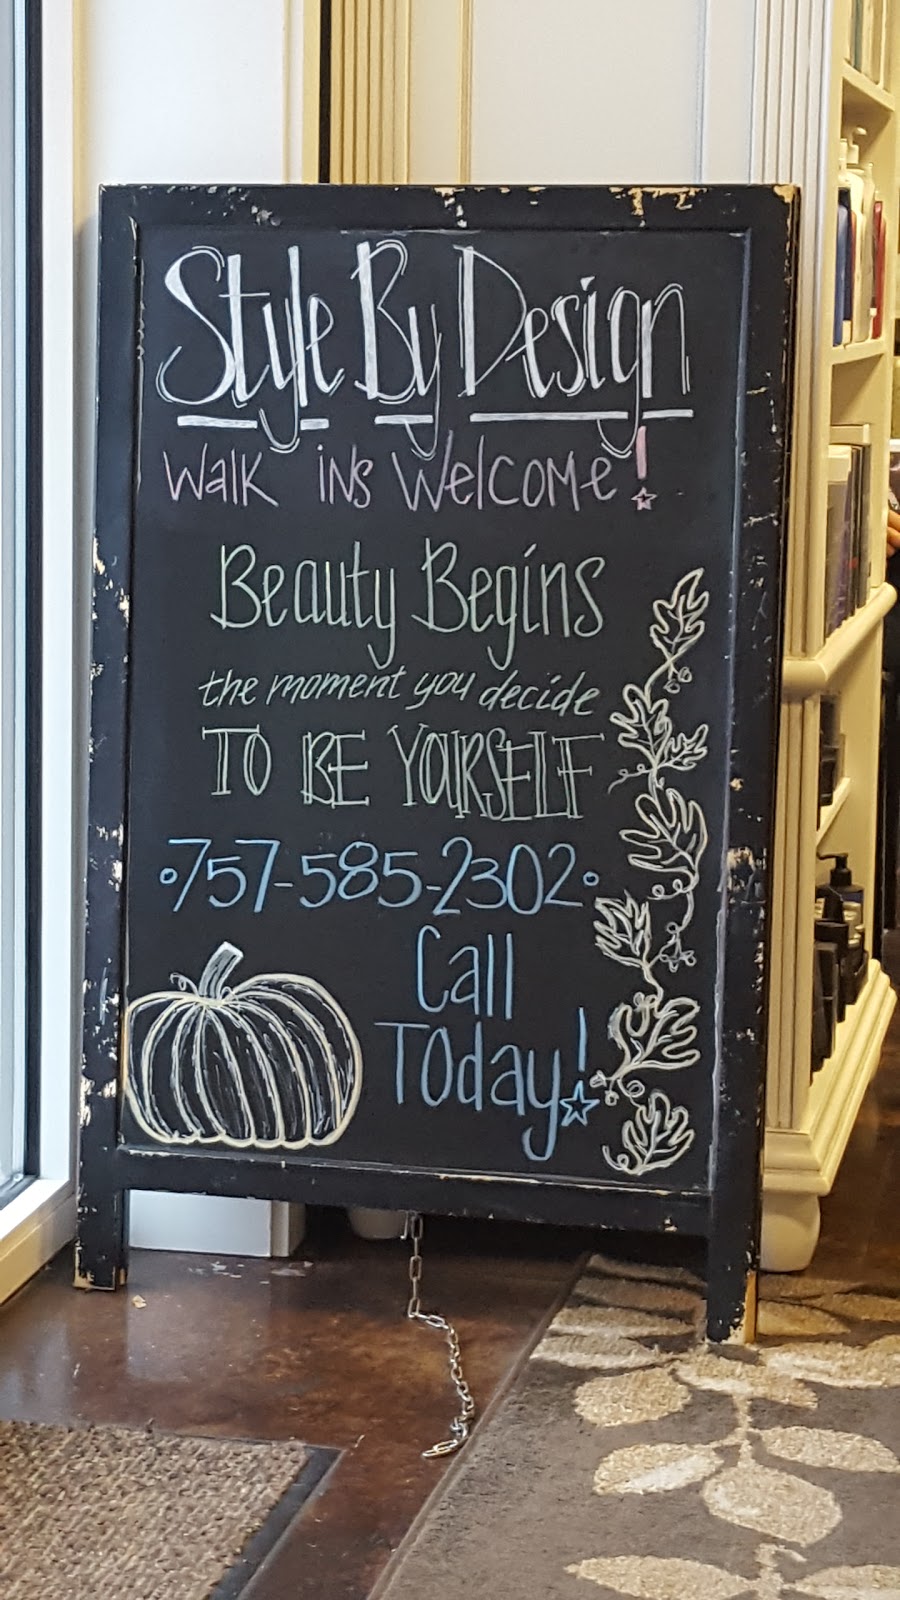 Style By Design
Walk ins Welcome!
Beauty Begins
the moment you decide
TO BE YOURSELF
•757-585-2302•
Call
TOday!